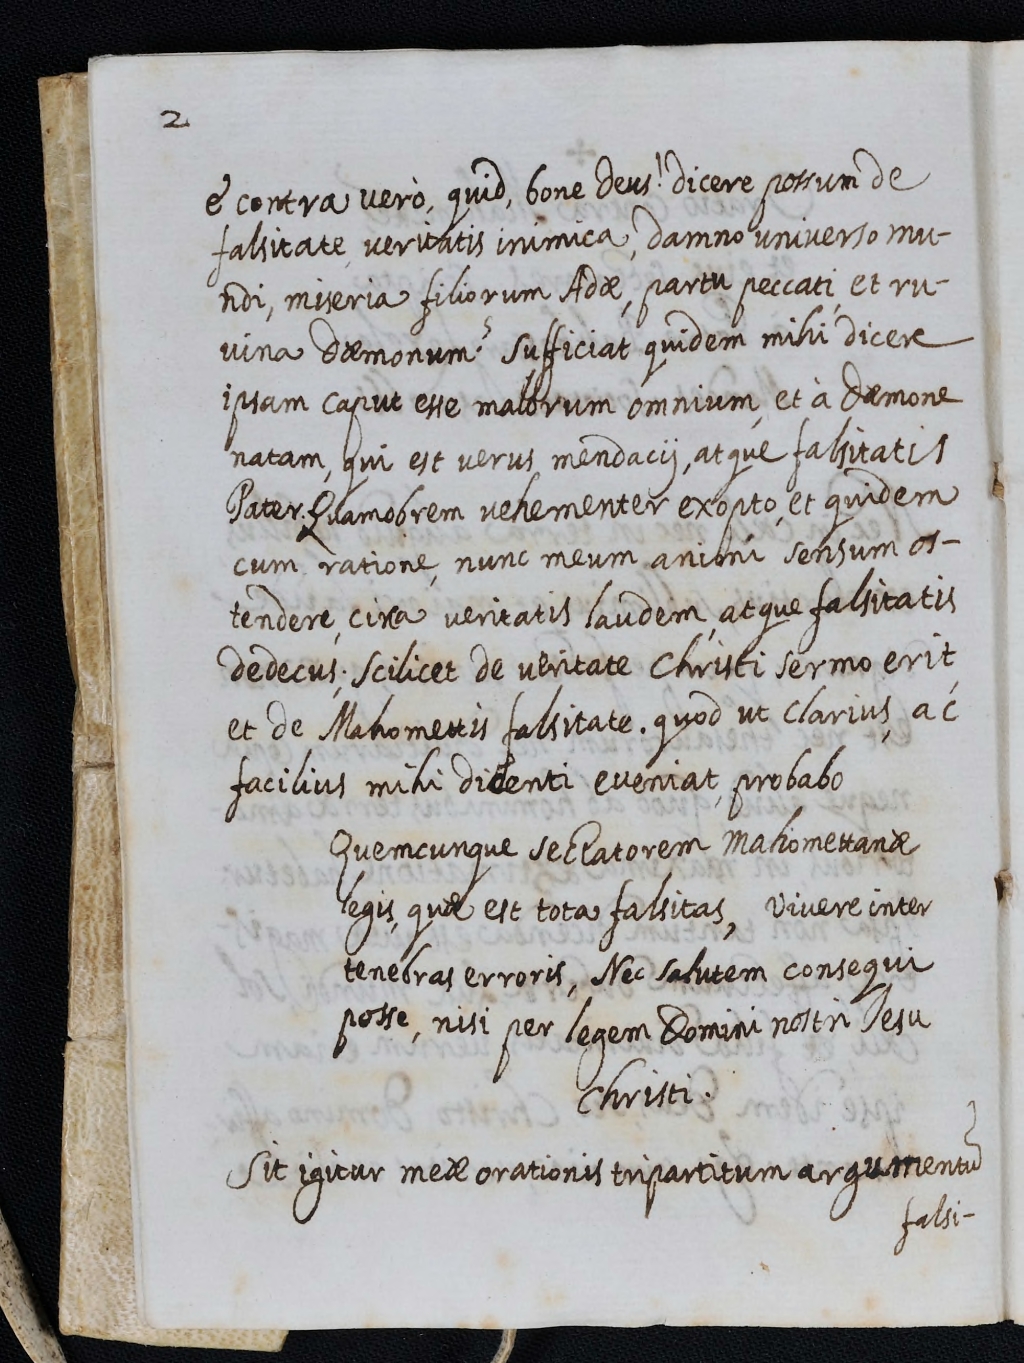 2
è contra verò, quid, bone Deus! dicere possum de
falsitate, veritatis inimica, damno universo mu-
ndi, miseria filiorum Adæ, partu peccati, et ru-
uina dæmonum? Sufficiat quidem mihi dicere
ipsam caput esse malorum omnium, et à dæmone
natam, qui est verus mendacij, atque falsitatis
Pater. Quamobrem vehementer exopto, et quidem
cum ratione, nunc meum animi sensum os-
tendere, circa veritatis laudem, atque falsitatis
dedecus; scilicet de veritate Christi sermo erit,
et de Mahomettis falsitate. quod ut clarius, ac
facilius mihi dicenti eveniat, probabo
Quemcunque sectatorem Mahomettanæ
legis, quæ est tota falsitas, vivere inter
tenebras erroris, Nec salutem consequi
posse, nisi per legem Domini nostri Iesu
Christi.
Sit igitur meæ orationis tripartitum argumentũ
falsi-